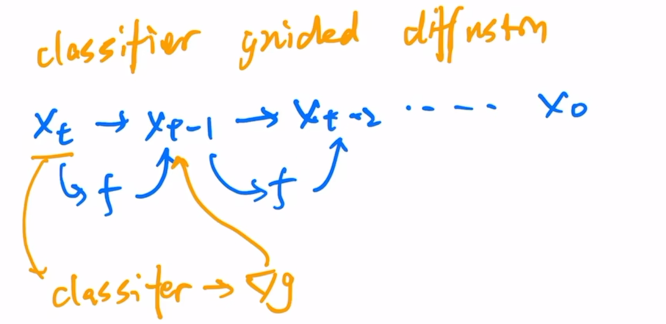 classifier guided diffusion
Xt → Xt-1 → Xt-2 ····· X0
f f
classifer → ∇g